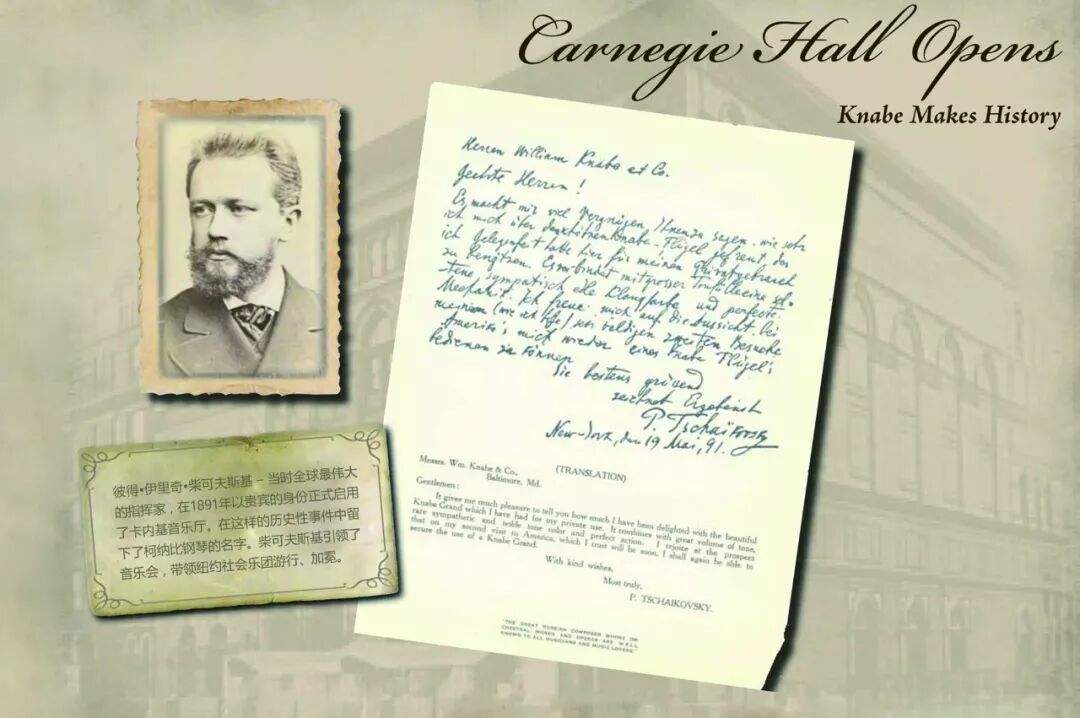 Carnegie Hall Opens
Knabe Makes History
Herren William Knabe et Co.
Geehrte Herren!
Es macht mir viel Vergnügen, Ihnen zu sagen, wie sehr
ich mich über den Knabe-Flügel gefreut, den
ich Gelegenheit hatte hier für meinen Privatgebrauch
zu Es verbindet mit grosser
sympatisch edle Klangfarbe und perfecte
Mechanik. Ich freue mich auf die Aussicht bei
meinem (wie ich hoffe) baldigen zweiten Besuche
Amerika's mich wieder eines Knabe Flügel's
bedienen zu können
Sie bestens grüssend
zeichnet Ergebenst
P. Tschaïkovsky
New-York, den 19 Mai, 91.
Messrs. Wm. Knabe & Co., (TRANSLATION)
Baltimore, Md.
Gentlemen:
It gives me much pleasure to tell you how much I have been delighted with the beautiful
Knabe Grand which I have had for my private use. It combines with great volume of tone,
rare sympathetic and noble tone color and perfect action. I rejoice at the prospect
that on my second visit to America, which I trust will be soon, I shall again be able to
secure the use of a Knabe Grand.
With kind wishes,
Most truly,
P. TSCHAIKOVSKY.
"THE GREAT RUSSIAN COMPOSER WHOSE OR-
CHESTRAL WORKS AND OPERAS ARE WELL
KNOWN TO ALL MUSICIANS AND MUSIC LOVERS."
彼得•伊里奇•柴可夫斯基 – 当时全球最伟大
的指挥家，在1891年以贵宾的身份正式启用
了卡内基音乐厅。在这样的历史性事件中留
下了柯纳比钢琴的名字。柴可夫斯基引领了
音乐会，带领纽约社会乐团游行、加冕。